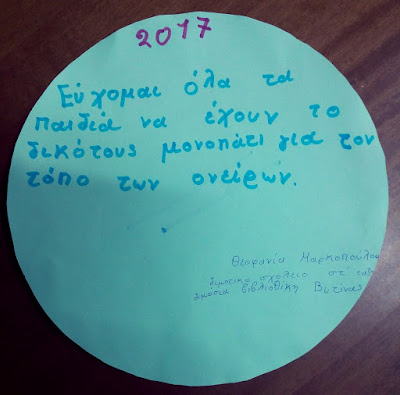 2017
Εύχομαι όλα τα
παιδιά να έχουν το
δικότους μονοπάτι για τον
τόπο των ονείρων.
Θεοφανία Μαρκοπούλου
Δημοτικό σχολείο στ' τάξη
Δημόσια βιβλιοθήκη Βυτίνας